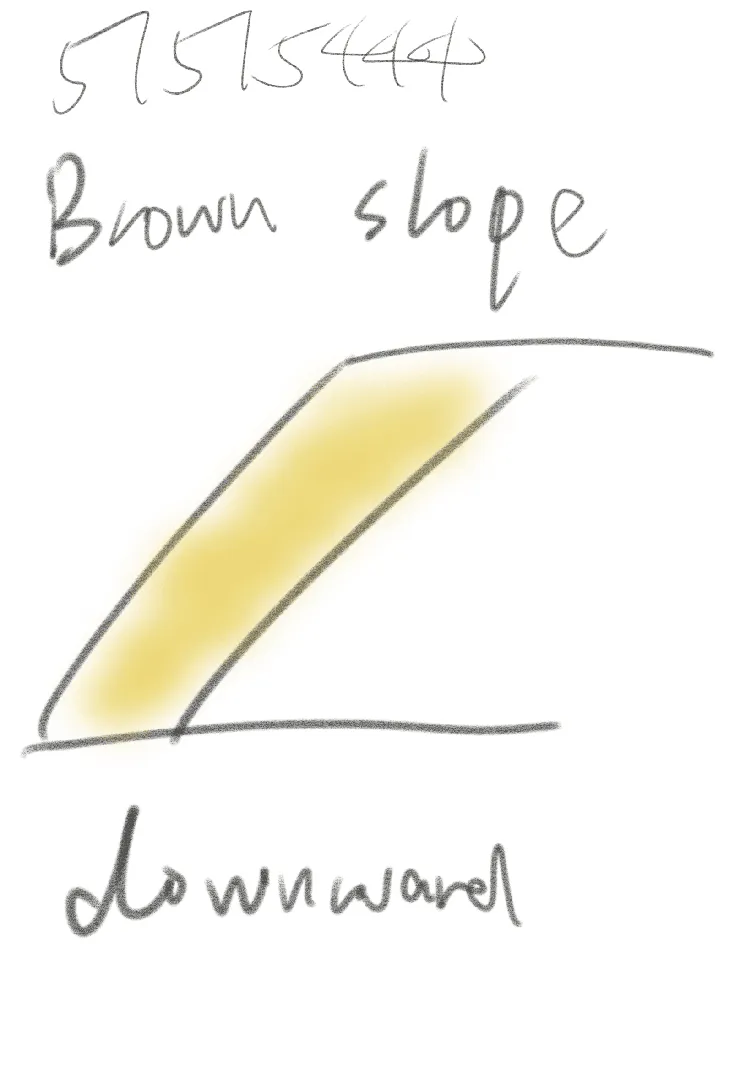 51515444
Brown slope
downward